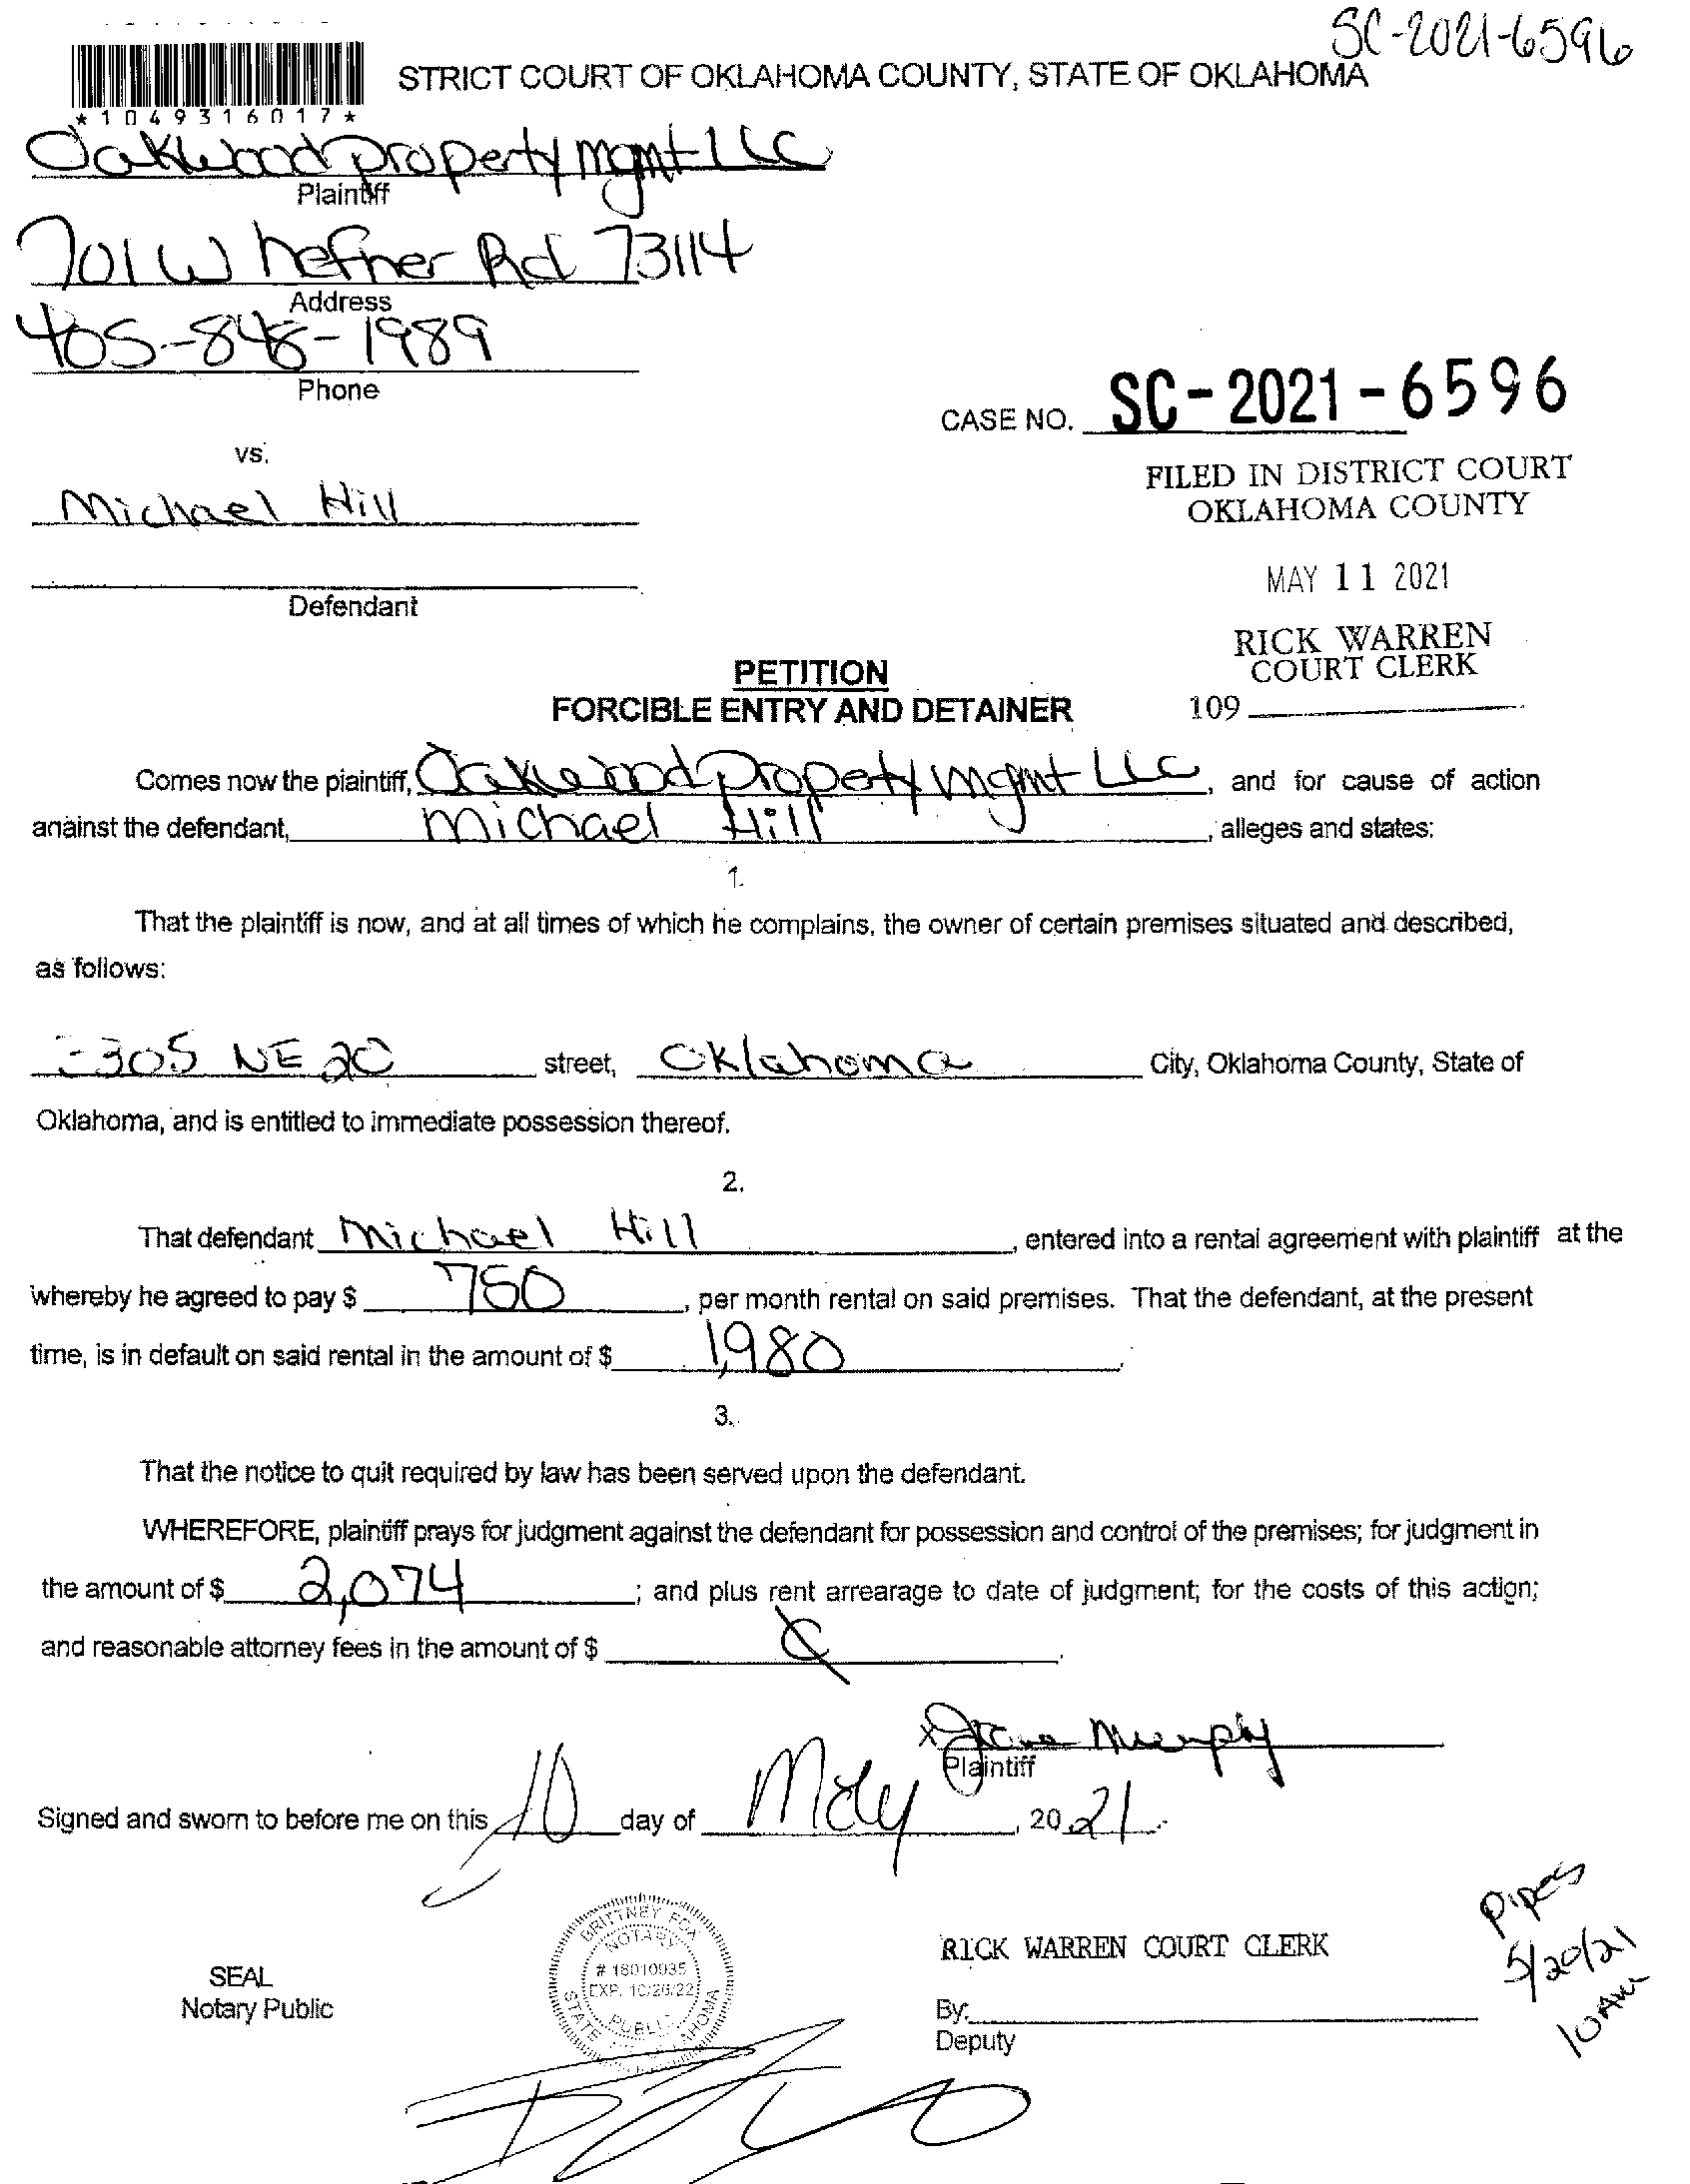 SC-2021-6596
STRICT COURT OF OKLAHOMA COUNTY, STATE OF OKLAHOMA
*1049316017*
Oakwood property mgmt LLC
Plaintiff
701 W hefner Rd 73114
Address
405-848-1989
Phone
CASE NO. SC-2021-6596
vs.
FILED IN DISTRICT COURT
OKLAHOMA COUNTY
Michael Hill
MAY 11 2021
Defendant
RICK WARREN
COURT CLERK
109
PETITION
FORCIBLE ENTRY AND DETAINER
Comes now the plaintiff, Oakwood Propety mgmt LLC, and for cause of action
against the defendant, Michael Hill, alleges and states:
1.
That the plaintiff is now, and at all times of which he complains, the owner of certain premises situated and described,
as follows:
305 NE 20 street, Oklahoma City, Oklahoma County, State of
Oklahoma, and is entitled to immediate possession thereof.
2.
That defendant Michael Hill, entered into a rental agreement with plaintiff at the
whereby he agreed to pay $ 750, per month rental on said premises. That the defendant, at the present
time, is in default on said rental in the amount of $ 1,980.
3.
That the notice to quit required by law has been served upon the defendant.
WHEREFORE, plaintiff prays for judgment against the defendant for possession and control of the premises; for judgment in
the amount of $ 2,074; and plus rent arrearage to date of judgment; for the costs of this action;
and reasonable attorney fees in the amount of $
x Murphy
Plaintiff
Signed and sworn to before me on this 10 day of May, 2021.
Pipes
5/20/21
10AM
BRITTNEY FOX
NOTARY
# 18010935
EXP. 10/26/22
PUBLIC
STATE OF OKLAHOMA
SEAL
Notary Public
RICK WARREN COURT CLERK
By:
Deputy